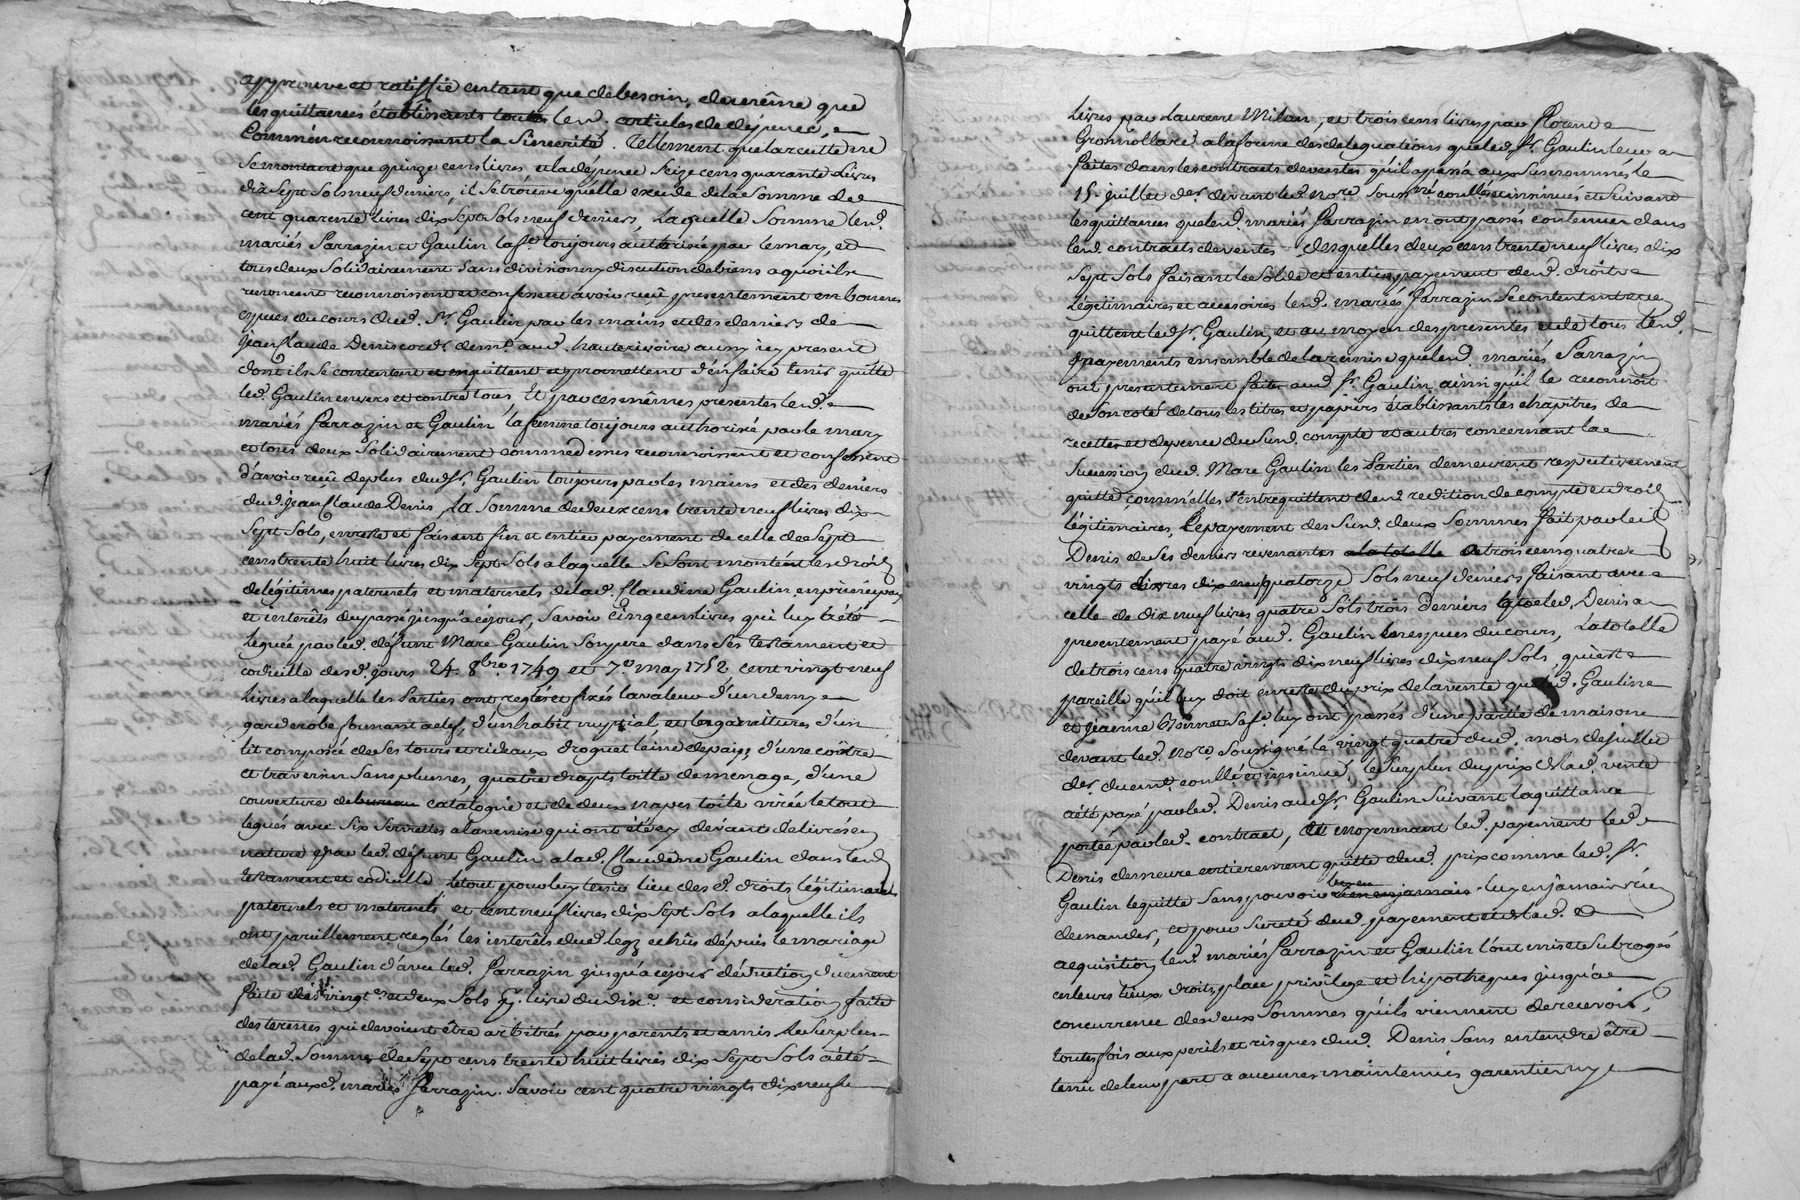 approuve et ratiffie en tant que de besoin, de même que
les quittances établissants tous les d. articles de dépence,
comme en reconnoissant la sincerité. Tellement que la recette ne
se montant que quinze cens livres et la dépence seize cens quarante livres
dix sept sols neuf deniers, il se trouve qu'elle excede de la somme de
cent quarente livres dix sept sols neuf deniers, laquelle somme les d.
mariés Sarrazin et Gaulin la fe. toujours authorisée par le mary, et
tous deux solidairement sans division ny discution de biens a quoi ils
renoncent reconnoissent et confessent avoir reçû presentement en bonnes
especes du cours dud. Sr. Gaulin par les mains et des deniers de
jean Claude Denis cord. dem. aud. hauterivoire aussy icy present
dont ils se contentent et en quittent et promettent d'en faire tenir quitte
led. Gaulin envers et contre tous. Et par ces mêmes presentes les d.
mariés Sarrazin et Gaulin la femme toujours authorisée par le mary
et tous deux solidairement comme dessus reconnoissent et confessent
d'avoir reçû de plus dud. Sr. Gaulin toujours par les mains et des deniers
dud. jean Claude Denis, la somme de deux cens trente neuf livres dix
sept sols, en reste et faisant fin et entier payement de celle de sept
cens trente huit livres dix sept sols a laquelle se sont montés les droits
de légitimes paternels et maternels de lad. Claudine Gaulin en principaux
et interêts du passé jusqu'a ce jour, savoir cinq cens livres qui luy a été
leguée par led. défunt Marc Gaulin son pere dans ses testament et
codicille des d. jours 24. 8bre 1749 et 7e. may 1752 cent vingt neuf
livres a laquelle les Parties ont reglés et fixés la valeur d'un demy
garderobe fermant a clef, d'un habit nuptial et les garnitures d'un
lit composé de ses tours et rideaux droguet leine de païs, d'une coëtre
et traversin sans plumes, quatre draps toille de menage, d'une
couverture de bureau catalogne et de deux napes toile virée le tout
legués avec six serviettes a la venise qui ont été cy devant delivrés en
nature par led. défunt Gaulin a lad. Claudine Gaulin dans les d.
testament et codicille le tout pour luy tenir lieu des d. droits légitimaires
paternels et maternels et cent neuf livres dix sept sols a laquelle ils
ont pareillement reglés les interêts dud. legs echûs depuis le mariage
de lad. Gaulin d'avec led. Sarrazin jusqu'a ce jour déduction duement
faite des vingt es. et deux sols p. livre du dixe. et consideration faite
des termes qui devoient être arbitrés par parents et amis. Le surplus
de lad. somme de sept cens trente huit livres dix sept sols a été
payé auxd. mariés Sarrazin. Savoir cent quatre vingts dix neuf
livres par Laurent Milan, et trois cens livres par Florende
Gronollard a la forme des delegations que led. Sr. Gaulin leur a
faites dans les contracts de ventes qu'il a passé aux susnommés le
15. juillet der. devant led. nore. soussne. conllés et insinués et suivant
les quittances que les d. mariés Sarrazin en ont passés contenues dans
les d. contracts de ventes, desquelles deux cens trente neuf livres dix
sept sols faisant le solde et entier payement des d. droits
légitimaires et accesoires les d. mariés Sarrazin se contentent et en
quittent led. Sr. Gaulin, et au moyen des presentes et de tous les d.
payements ensemble de la remise que les d. mariés Sarrazin
ont presentement faite aud. Sr. Gaulin ainsi qu'il le reconnoit
de son coté de tous les titres et papiers établissants les chapitres de
recettes et depence du sus d. compte et autres concernant la
sucession dud. Marc Gaulin les Parties demeurent respectivement
quitte comm'elles s'entrequittent de lad. redition de compte et droits
légitimaires, le payement des sus d. deux sommes fait par led.
Denis de ses deniers revenantes a la totelle de trois cens quatre
vingts livres dix neuf quatorze sols neuf deniers faisant avec
celle de dix neuf livres quatre sols trois deniers que led. Denis a
presentement payé aud. Gaulin en especes du cours, la totelle
de trois cens quatre vingts dix neuf livres dix neuf sols, qui est
pareille qu'il luy doit en reste du prix de la vente que led. Gaulin
et jeanne Bonnet sa fe. luy ont passés d'une partie de maison
devant led. nore. soussigné le vingt quatre dud. mois de juillet
der. duemt. conllé et insinué, le surplus du prix de lad. vente
a été payé par led. Denis aud. Sr. Gaulin suivant la quittance
portée par led. contract, et moyennant led. payement led.
Denis demeure entierement quitte dud. prix comme led. Sr.
Gaulin le quitte sans pouvoir luy en jamais rien
demander, et pour sureté dud. payement et de lad.
acquisition les d. mariés Sarrazin et Gaulin l'ont mis et subrogés
en leurs lieux, droits, place privilege et hipotheques jusqu'a
concurrence des deux sommes qu'ils viennent de recevoir,
toutesfois aux perils et risques dud. Denis sans entendre être
tenu de leur part a aucunes maintenues garentie ny